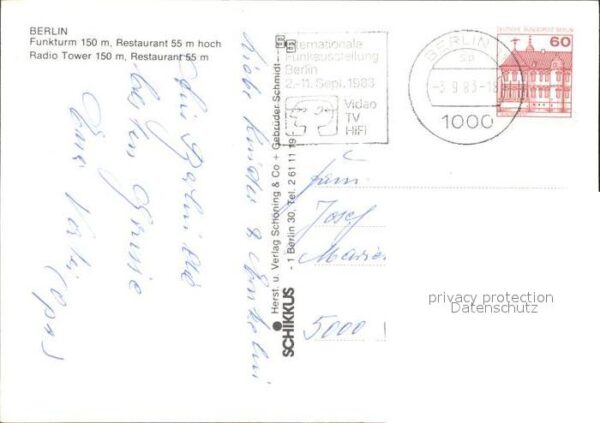 BERLIN
Funkturm 150 m, Restaurant 55 m hoch
Radio Tower 150 m, Restaurant 55 m
Internationale
Funkausstellung
Berlin
2.-11. Sept. 1983
Video
TV
HiFi
BERLIN
-3.9.83-18
1000
DEUTSCHE BUNDESPOST BERLIN
60
Liebe Kinder &
die
besten Grüsse
Eure
(Opa)
SCHIKKUS
Herst. u. Verlag Schöning & Co + Gebrüder Schmidt
- 1 Berlin 30, Tel. 2 61 11 19
Fam.
Josef
5000
privacy protection
Datenschutz